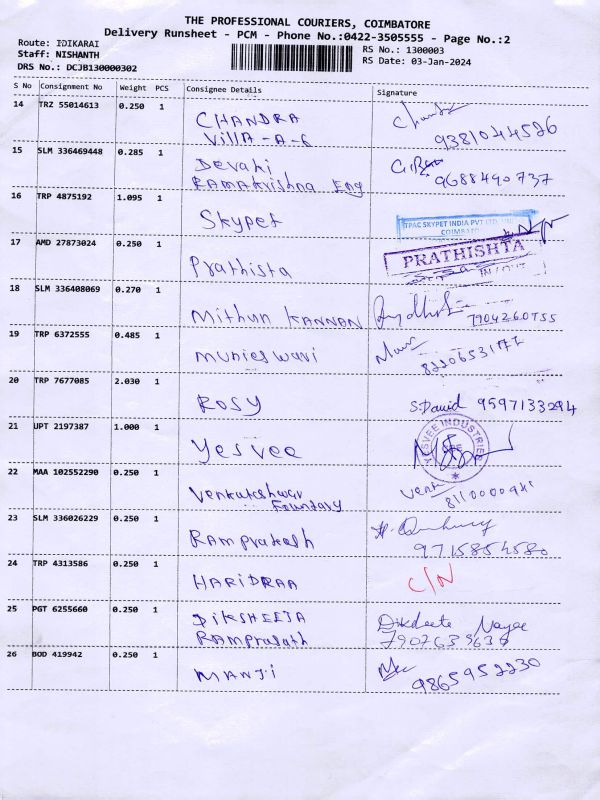 THE PROFESSIONAL COURIERS, COIMBATORE
Delivery Runsheet - PCM - Phone No.:0422-3505555 - Page No.:2
Route: IDIKARAI
RS No.: 1300003
Staff: NISHANTH
RS Date: 03-Jan-2024
DRS No.: DCJB130000302
S No Consignment No Weight PCS Consignee Details Signature
14 TRZ 55014613 0.250 1 CHANDRA
Villa - A-6 9381044526
15 SLM 336469448 0.285 1 Devaki
Ramakrishna Eng 9688490737
16 TRP 4875192 1.095 1 Skypet
TPAC SKYPET INDIA PVT LTD
COIMBAT
17 AMD 27873024 0.250 1 Prathista PRATHISHTA
18 SLM 336408069 0.270 1 Mithun KANNAN 7904260755
19 TRP 6372555 0.485 1 Munieswari
20 TRP 7677085 2.030 1 ROSY S.David 9597133294
21 UPT 2197387 1.000 1 Yesvee YESVEE INDUSTRIES
22 MAA 102552290 0.250 1 Venkateshwar
Foundary 8110000941
23 SLM 336026229 0.250 1 RAMPrakesh 9715854580
24 TRP 4313586 0.250 1 HARIDRAA C/N
25 PGT 6255660 0.250 1 DIKSHEETA
RAMPrasath
26 BOD 419942 0.250 1 MANJI 9865952230